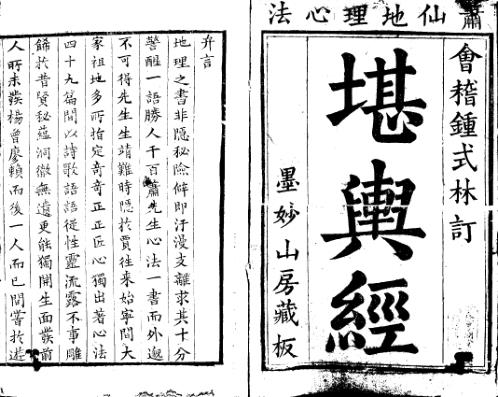 蕭仙地理心法
會稽鍾式林訂
堪輿經
墨妙山房藏板
弁言
地理之書非隱秘險僻即汗漫支離求其十分
警醒一語勝人千百蕭先生心法一書而外邈
不可得先生生靖難時隱於賈往來始寧間大
家祖地多所指定奇奇正正匠心獨出著心法
四十九篇間以詩歌語語從性靈流露不事雕
餙於昔賢秘蘊洞徹無遺更能獨開生面發前
人所未發楊曾廖賴而後一人而已間嘗於遊